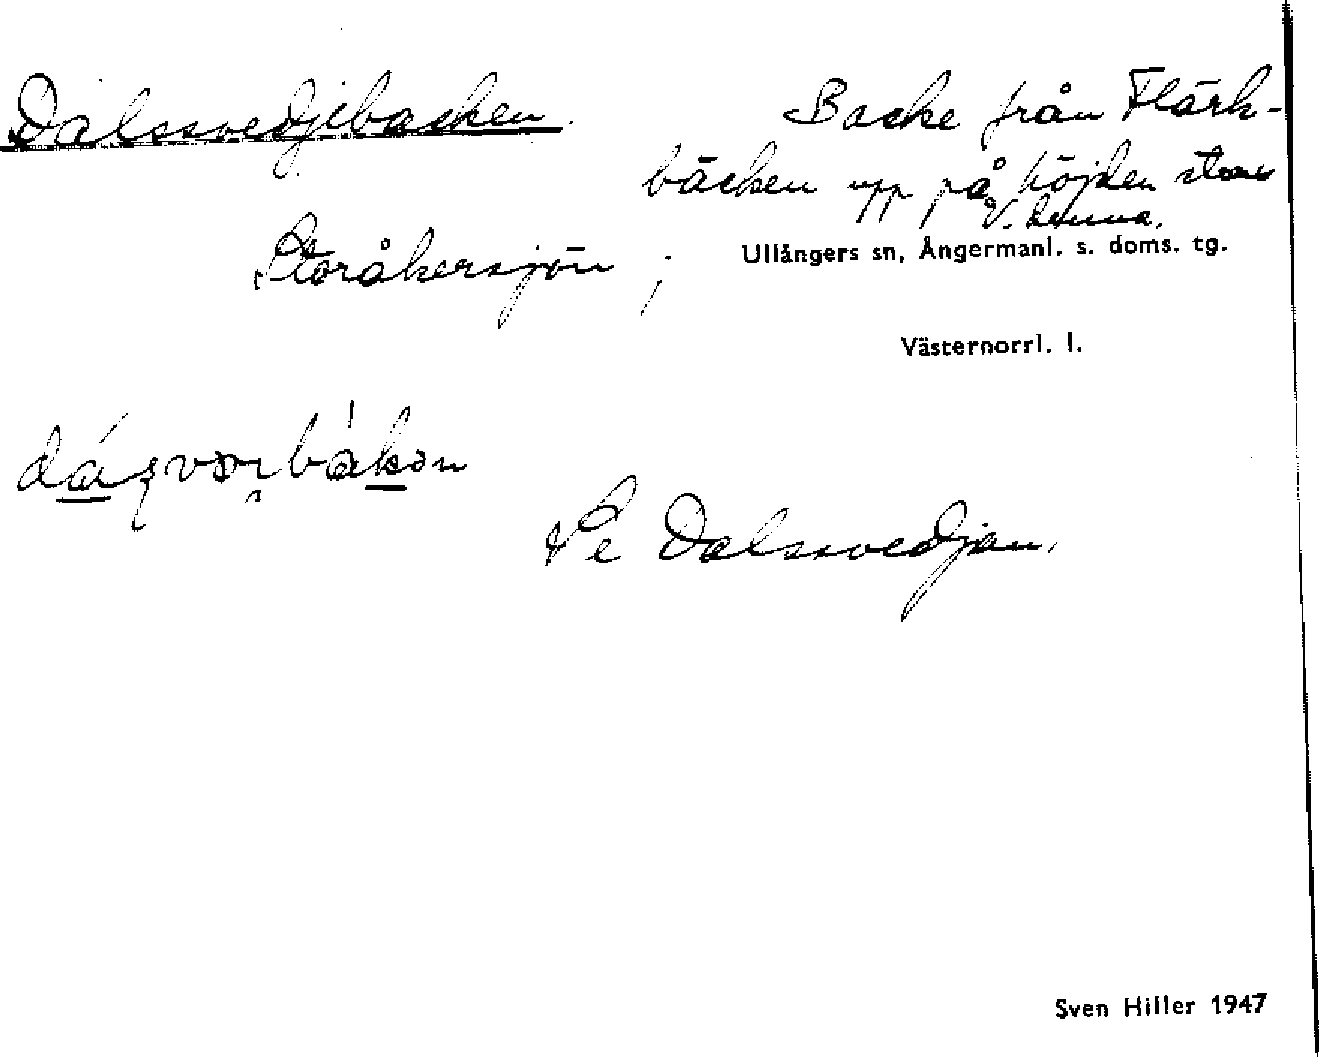 Dalssvedjebacken. Backe från Flärk-
bäcken upp på höjden
V. denna.
Storåkersjön ; Ullångers sn, Ångermanl. s. doms. tg.
Västernorrl. l.
Se Dalssvedjan.
Sven Hiller 1947